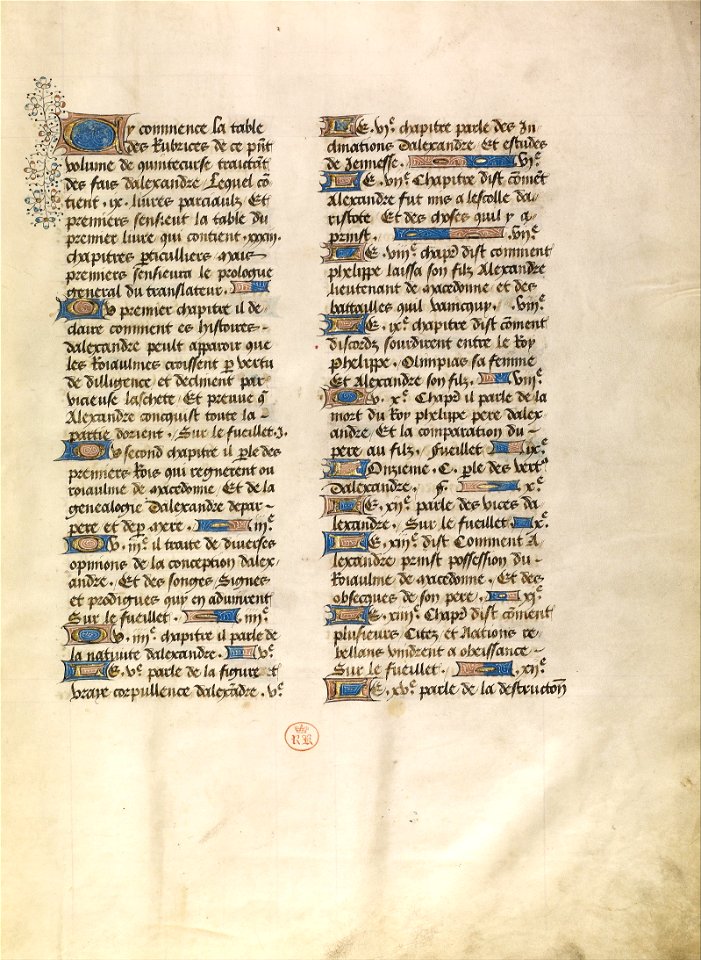 Cy commence la table
des Rubrices de ce pñt
volume de quintecurse traictãt
des fais dalexandre Lequel cõ
tient .ix. liures parciaulx Et
premiers sensieut la table du
premier liure qui contient .xxxiii.
chapitres particulliers Mais
premiers sensieura le prologue
general du translateur.
Ou premier chapitre il de
claire comment es histoires
dalexandre peult apparoir que
les Roiaulmes croissent par vertu
de dilligence et declinent par
vicieuse laschete Et preuue q̃
Alexandre conquist toute la
partie dorient . Sur le fueillet .I.
Ou second chapitre il parle des
premiers Rois qui regnerent ou
roiaulme de Macedonne Et de la
genealogie Dalexandre de par
pere et de par Mere . iiiᵉ
Ou .iiiᵉ. il traite de diuerses
opinions de la conception dalex
andre . Et des songes Signes
et prodigues qui en aduinrent
Sur le fueillet . iiiiᵉ.
Ou .iiiiᵉ. chapitre il parle de
la natiuite dalexandre . vᵉ.
LE .vᵉ. parle de la figure et
vraye corpullence dalexãdre . vᵉ
LE .viᵉ. chapitre parle des In
clinations Dalexandre Et estudes
de Jennesse . viᵉ.
LE .viiᵉ. Chapitre dist cõmẽt
Alexandre fut mis a lescolle da
ristote Et des choses quil y a
prinst . viiᵉ
LE .viiiᵉ. chapᵉ dist comment
phelippe laissa son filz Alexandre
lieutenant de Macedonne et des
battailles quil vainquy . viiiᵉ.
LE .ixᵉ. chapitre dist cõment
discordz sourdirent entre le Roy
Phelippe . Olimpias sa femme
Et Alexandre son filz . viiiᵉ.
Ou .xᵉ. Chapᵉ il parle de la
mort du Roy phelippe pere dalex
andre Et la comparation du
pere au filz . Fueillet ixᵉ.
LOnzieme .C. parle des vertꝰ
Dalexandre . f. xᵉ.
LE .xiiᵉ parle des vices da
lexandre . Sur le fueillet xᵉ.
LE .xiiiᵉ dist Comment A
lexandre prinst possession du
Roiaulme de Macedonne . Et des
obseques de son pere . xiᵉ.
LE .xiiiiᵉ. Chapᵉ dist cõment
plusieurs Citez et Nations re
bellans vindrent a obeissance
Sur le fueillet . xiiᵉ.
LE .xvᵉ parle de la destructoñ